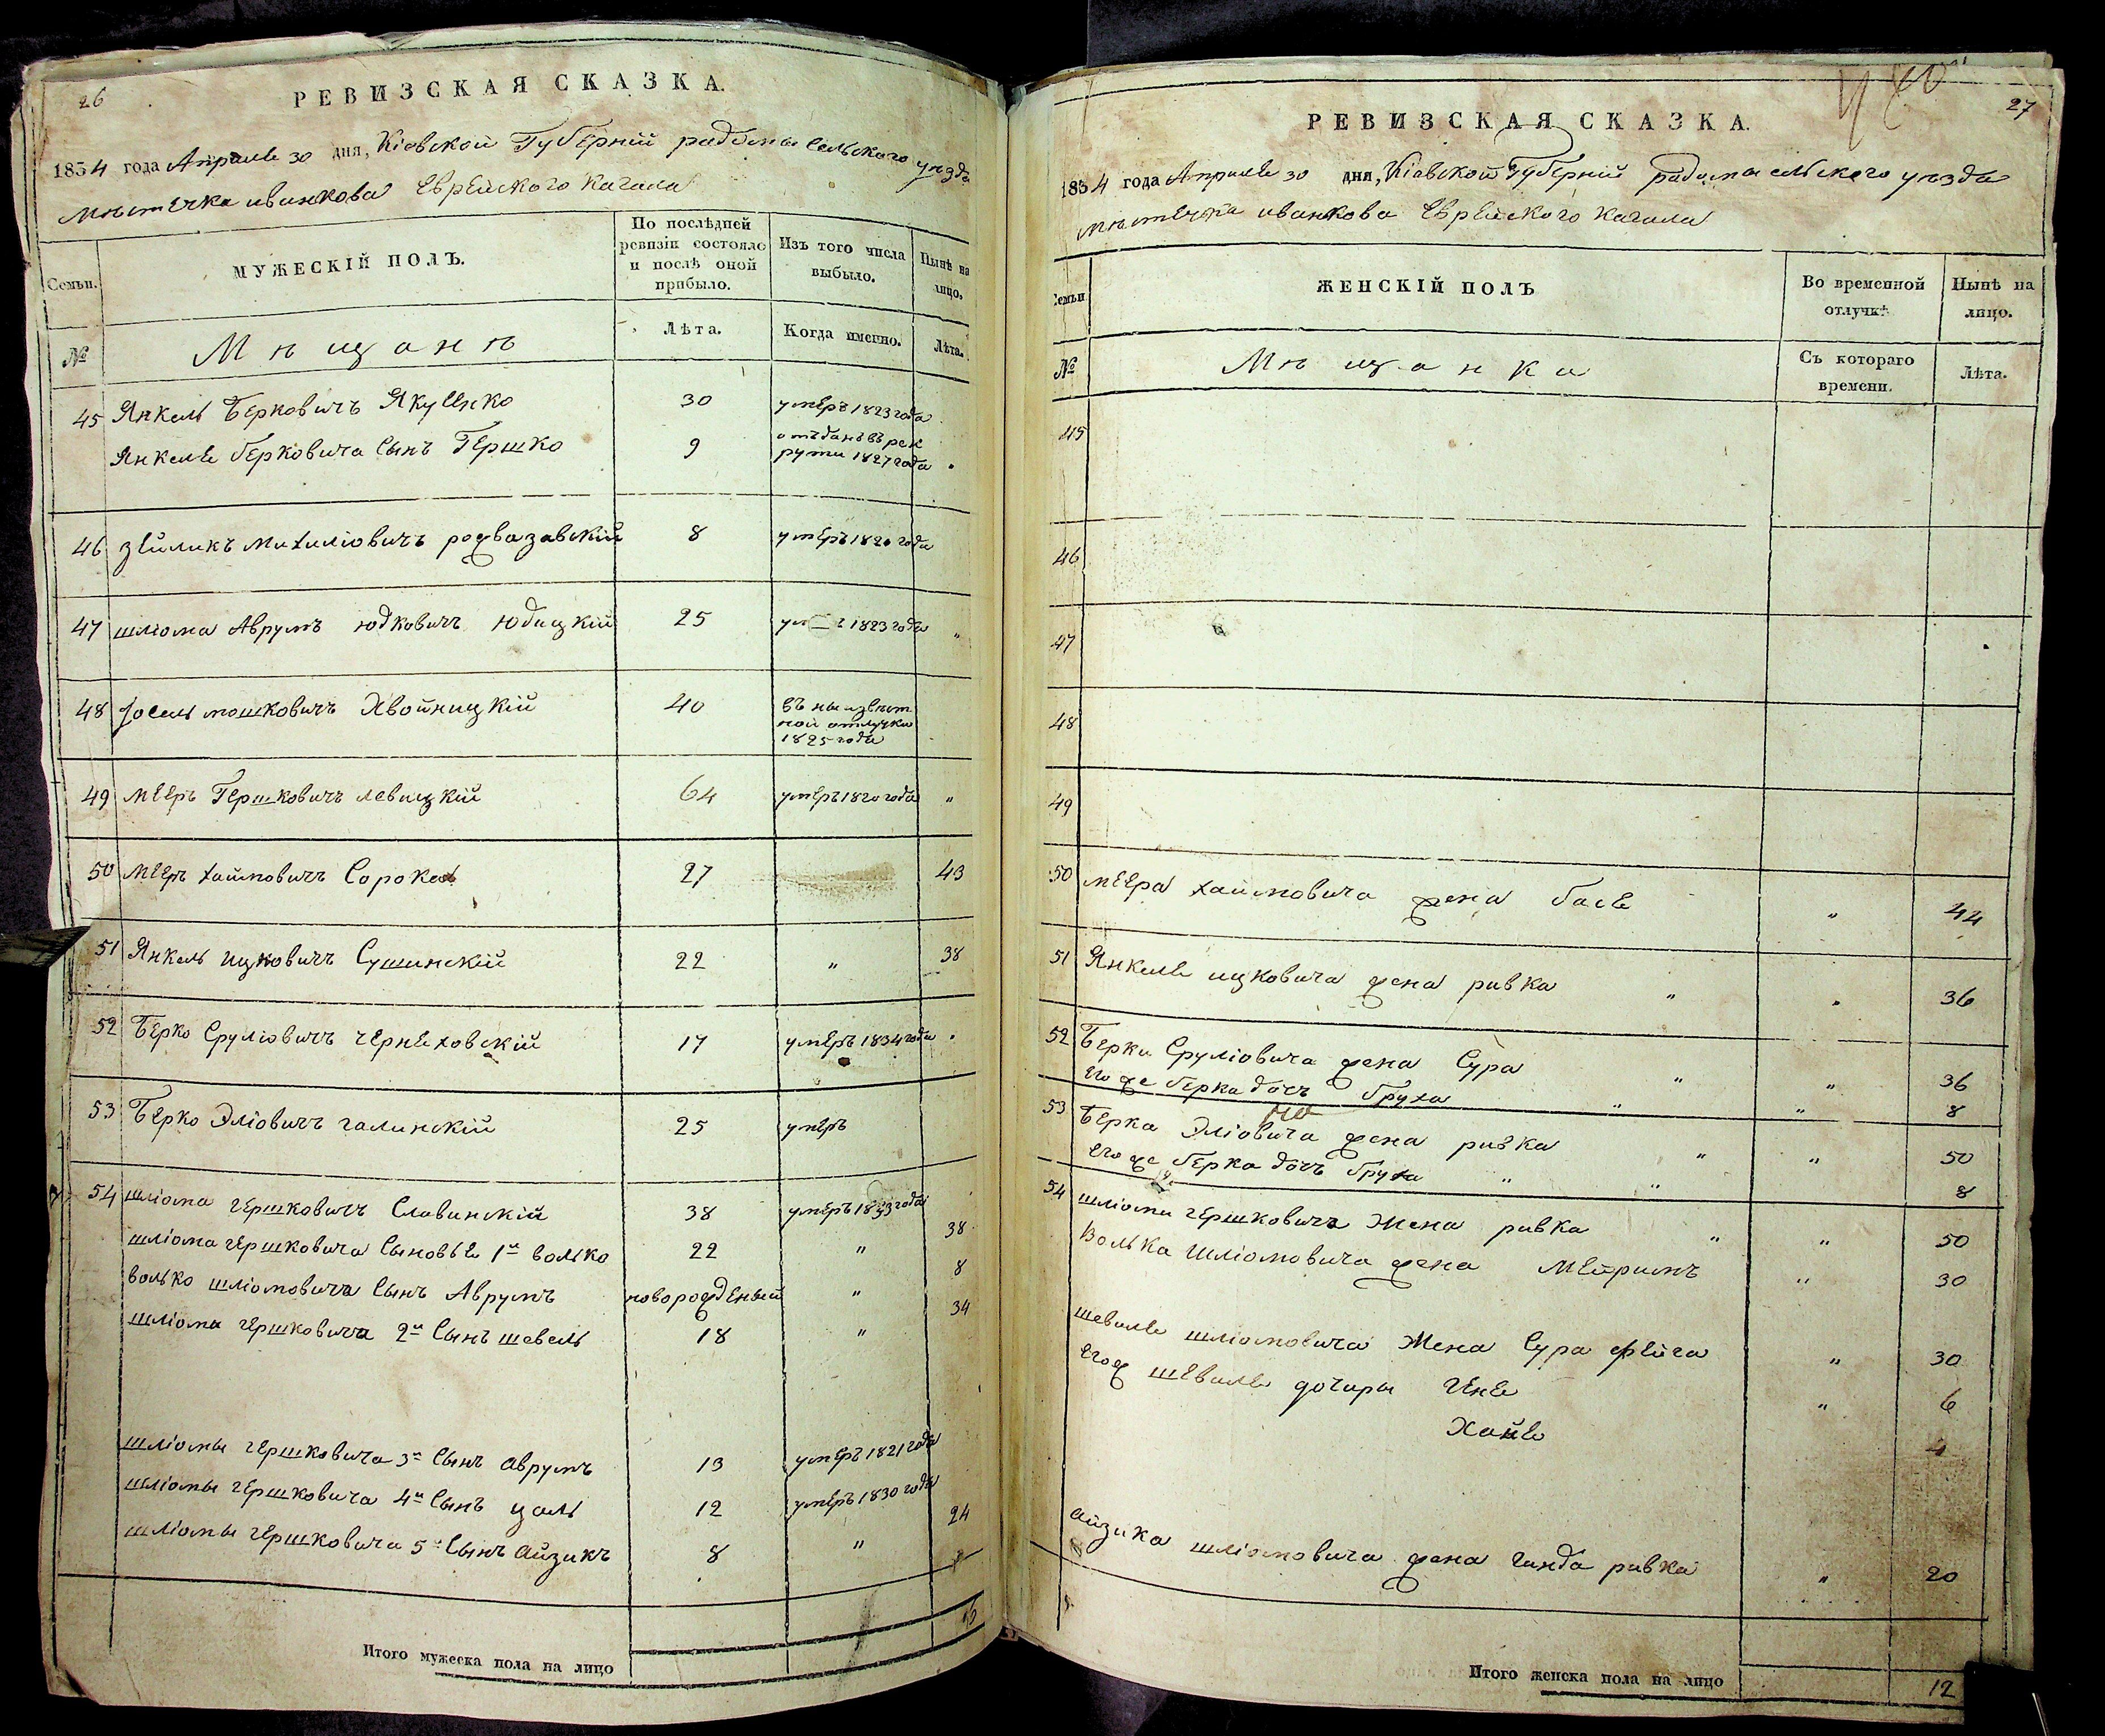 26
РЕВИЗСКАЯ СКАЗКА.
1834 года Апреля 30 дня, Кіевской Губерніи радомысельского уезда
мѣстечка иванкова Еврейского Кагала
Семьи.
МУЖЕСКІЙ ПОЛЪ.
По послѣдней ревизіи состояло и послѣ оной прибыло.
Изъ того числа выбыло.
Нынѣ на лицо.
№
Мѣщанѣ
Лѣта.
Когда именно.
Лѣта.
45 Янкель Берковичъ Якуенко 30 умеръ 1823 года
Янкеля Берковича Сынъ Гершко 9 отъданъ въ рекруты 1827 года
46 зейликъ Михиліовичъ 8 умеръ 1820 года
47 шліома Аврумъ Юдковичъ Юдицкій 25 1823 года "
48 Іосель мошковичъ Хвойницкій 40 въ
ной отлучки
1825 года
49 мееръ Гершковичъ левицкій 64 умеръ 1820 года "
50 мееръ хаимовичъ Сорока 27 43
51 Янкель ицковичъ Сушинскій 22 " 38
52 Берко Сруліовичъ чернеховскій 17 умеръ 1834 года
53 Берко Эліовичъ галинскій 25 умеръ
54 шліома гершковичъ Славинскій 38 умеръ 1833 года
шліома гершковича Сыновья 1й волько 22 " 38
волько шліомовича Сынъ Аврумъ новорожденый " 8
шліома гершковича 2й Сынъ шевель 18 " 34
шліомы гершковича 3й Сынъ аврумъ 13 умеръ 1821 года
шліомы гершковича 4й Сынъ цаль 12 умеръ 1830 года
шліомы гершковича 5й Сынъ айзикъ 8 " 24
Итого мужеска пола на лицо
27
РЕВИЗСКАЯ СКАЗКА.
1834 года Апреля 30 дня, Кіевской Губерніи радомысельского уезда
мѣстечка иванкова Еврейского Кагала
Семьи
ЖЕНСКІЙ ПОЛЪ
Во временной отлучкѣ
Нынѣ на лицо.
№
Мѣщанки
Съ котораго времени.
Лѣта.
45
46
47
48
49
50 меера хаимовича жена бася " 44
51 Янкеля ицковича жена ривка " 36
52 Берки Сруліовича жена Сура " " 36
его же берка дочь бруха " " 8
53 Берка Эліовича жена ривка " " 50
его же берка дочь бруха " " 8
54 шліомы гершковича Жена ривка " " 50
Волька Шліомовича жена Мейримъ " 30
шевеля шліомовича Жена Сура фейга " 30
егож шевеля дочиры Геня " 6
Хайя 4
айзика шліомовича жена гинда ривка " 20
Итого женска пола на лицо 12